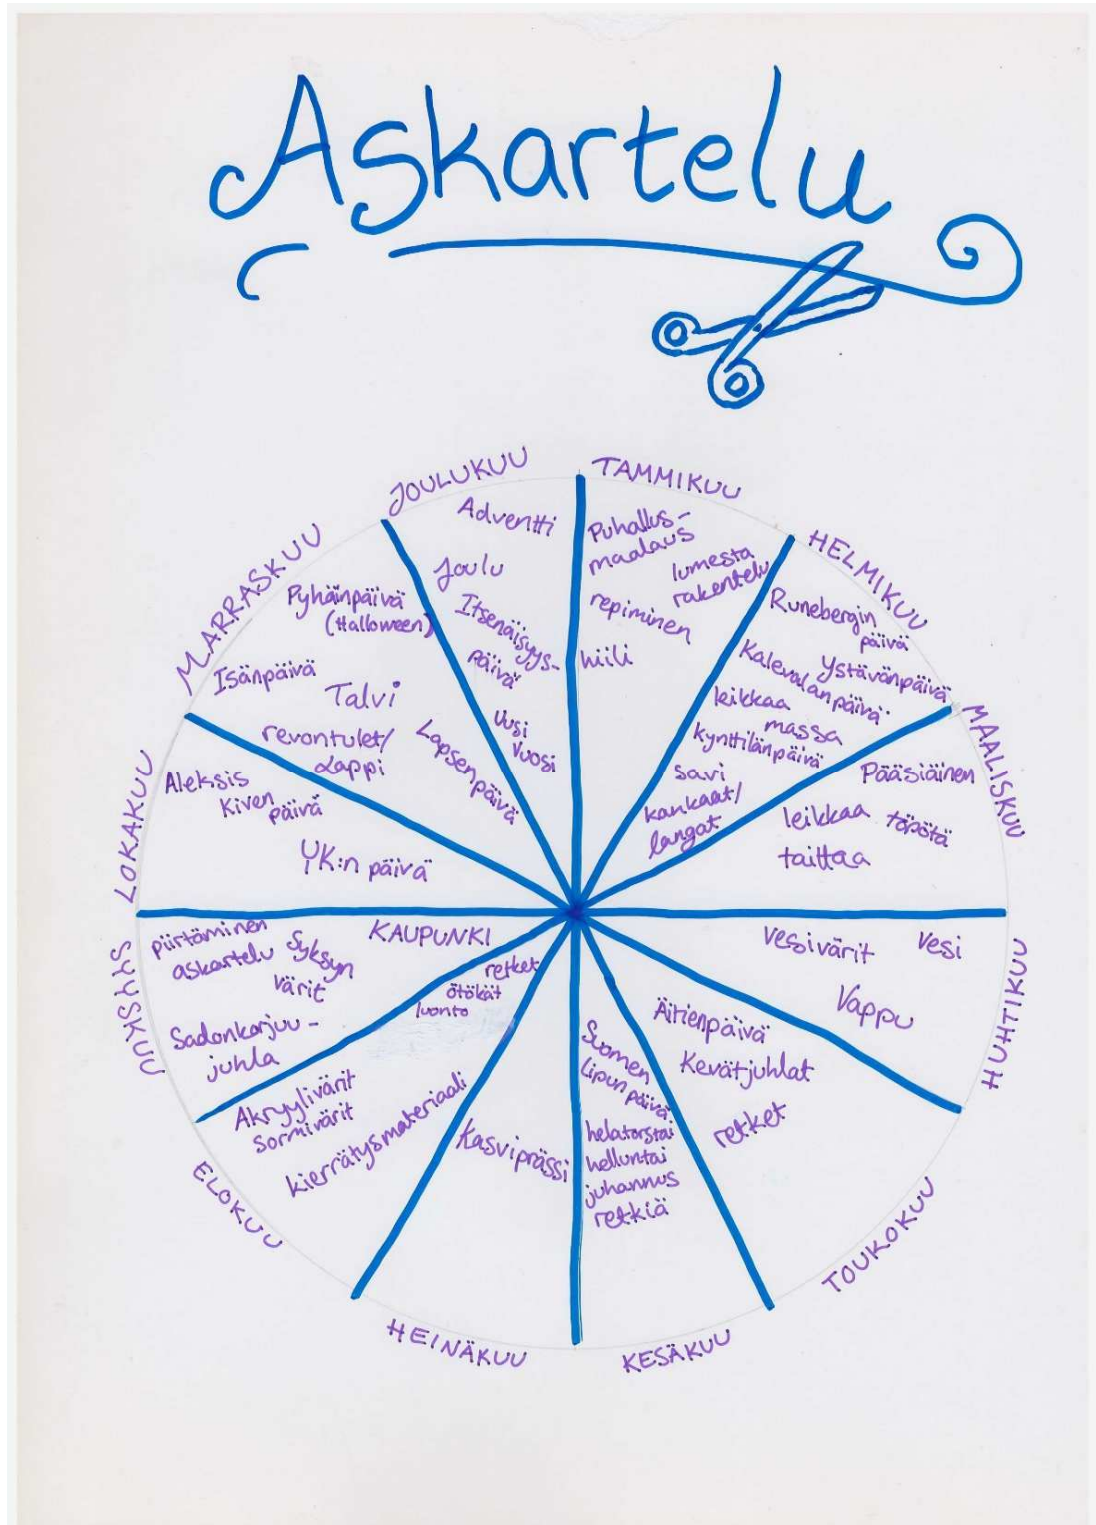 Askartelu
TAMMIKUU
Puhallus-
maalaus
lumesta
rakentelu
repiminen
hiili
HELMIKUU
Runebergin
päivä
Ystävänpäivä
Kalevalanpäivä
leikkaa
massa
kynttilänpäivä
savi
kankaat/
langat
MAALISKUU
Pääsiäinen
leikkaa töpötä
taittaa
HUHTIKUU
vesivärit vesi
Vappu
TOUKOKUU
Äitienpäivä
Kevätjuhlat
retket
KESÄKUU
Suomen
lipun päivä
helatorstai
helluntai
juhannus
retkiä
HEINÄKUU
Kasviprässi
ELOKUU
retket
ötökät
luonto
Akryylivärit
sormivärit
kierrätysmateriaali
SYYSKUU
piirtäminen
askartelu
KAUPUNKI
Syksyn
värit
Sadonkorjuu-
juhla
LOKAKUU
Aleksis
Kiven
päivä
YK:n päivä
MARRASKUU
Pyhäinpäivä
(Halloween)
Isänpäivä
Talvi
revontulet/
Lappi
JOULUKUU
Adventti
Joulu
Itsenäisyys-
päivä
Uusi
Vuosi
Lapsenpäivä